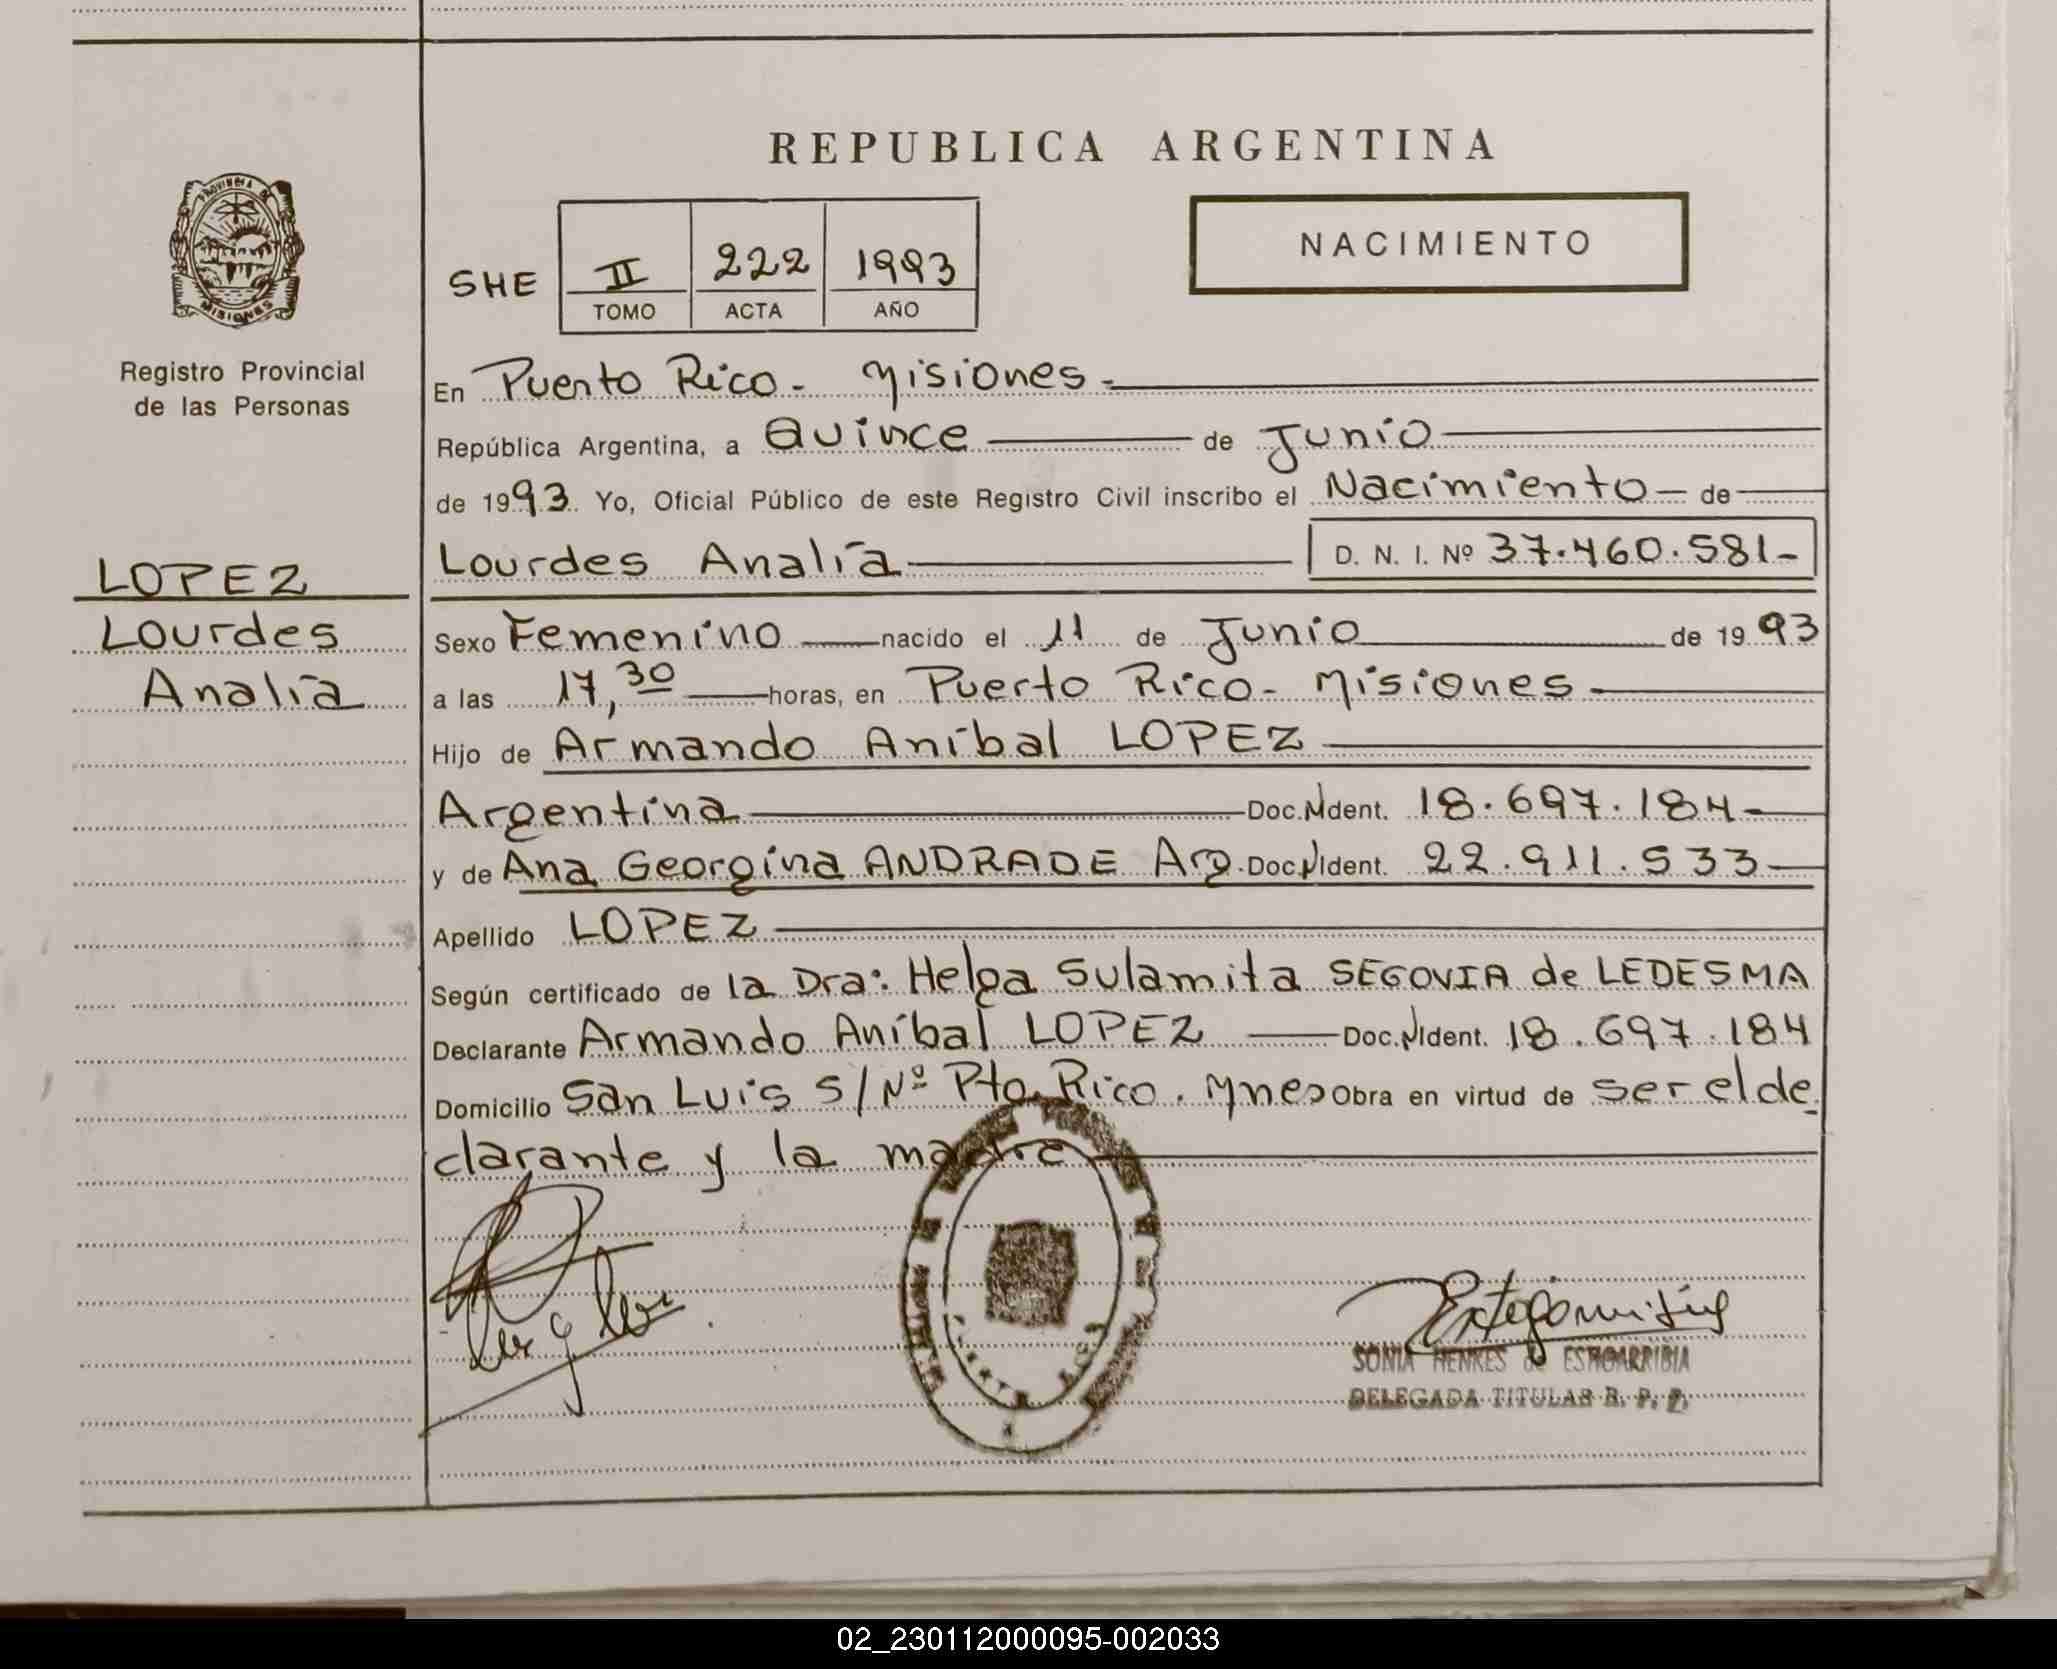 REPUBLICA ARGENTINA
PROVINCIA DE
MISIONES
Registro Provincial
de las Personas
SHE II 222 1993
TOMO ACTA AÑO
NACIMIENTO
En Puerto Rico - Misiones -
República Argentina, a Quince de Junio
de 1993. Yo, Oficial Público de este Registro Civil inscribo el Nacimiento de
Lourdes Analía D. N. I. Nº 37.460.581-
LOPEZ
Lourdes
Analía
Sexo Femenino nacido el 11 de Junio de 19 93
a las 17,30 horas, en Puerto Rico - Misiones -
Hijo de Armando Aníbal LOPEZ
Argentina Doc.NIdent. 18.697.184-
y de Ana Georgina ANDRADE Arg. Doc.NIdent. 22.911.533-
Apellido LOPEZ
Según certificado de la Dra: Helga Sulamita SEGOVIA de LEDESMA
Declarante Armando Aníbal LOPEZ Doc.NIdent. 18.697.184
Domicilio San Luis S/Nº Pto. Rico. Mnes Obra en virtud de ser el de
clarante y la madre
SONIA HENKES de ESTIGARRIBIA
DELEGADA TITULAR R. P. P.
02_230112000095-002033